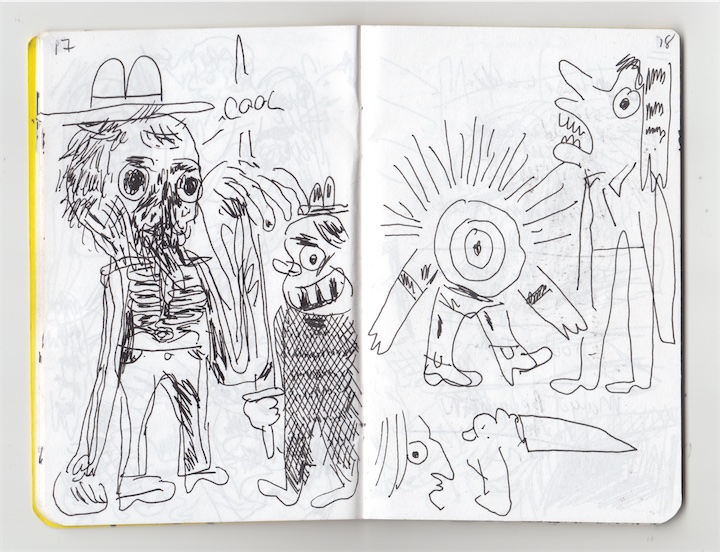 17
COOL
18